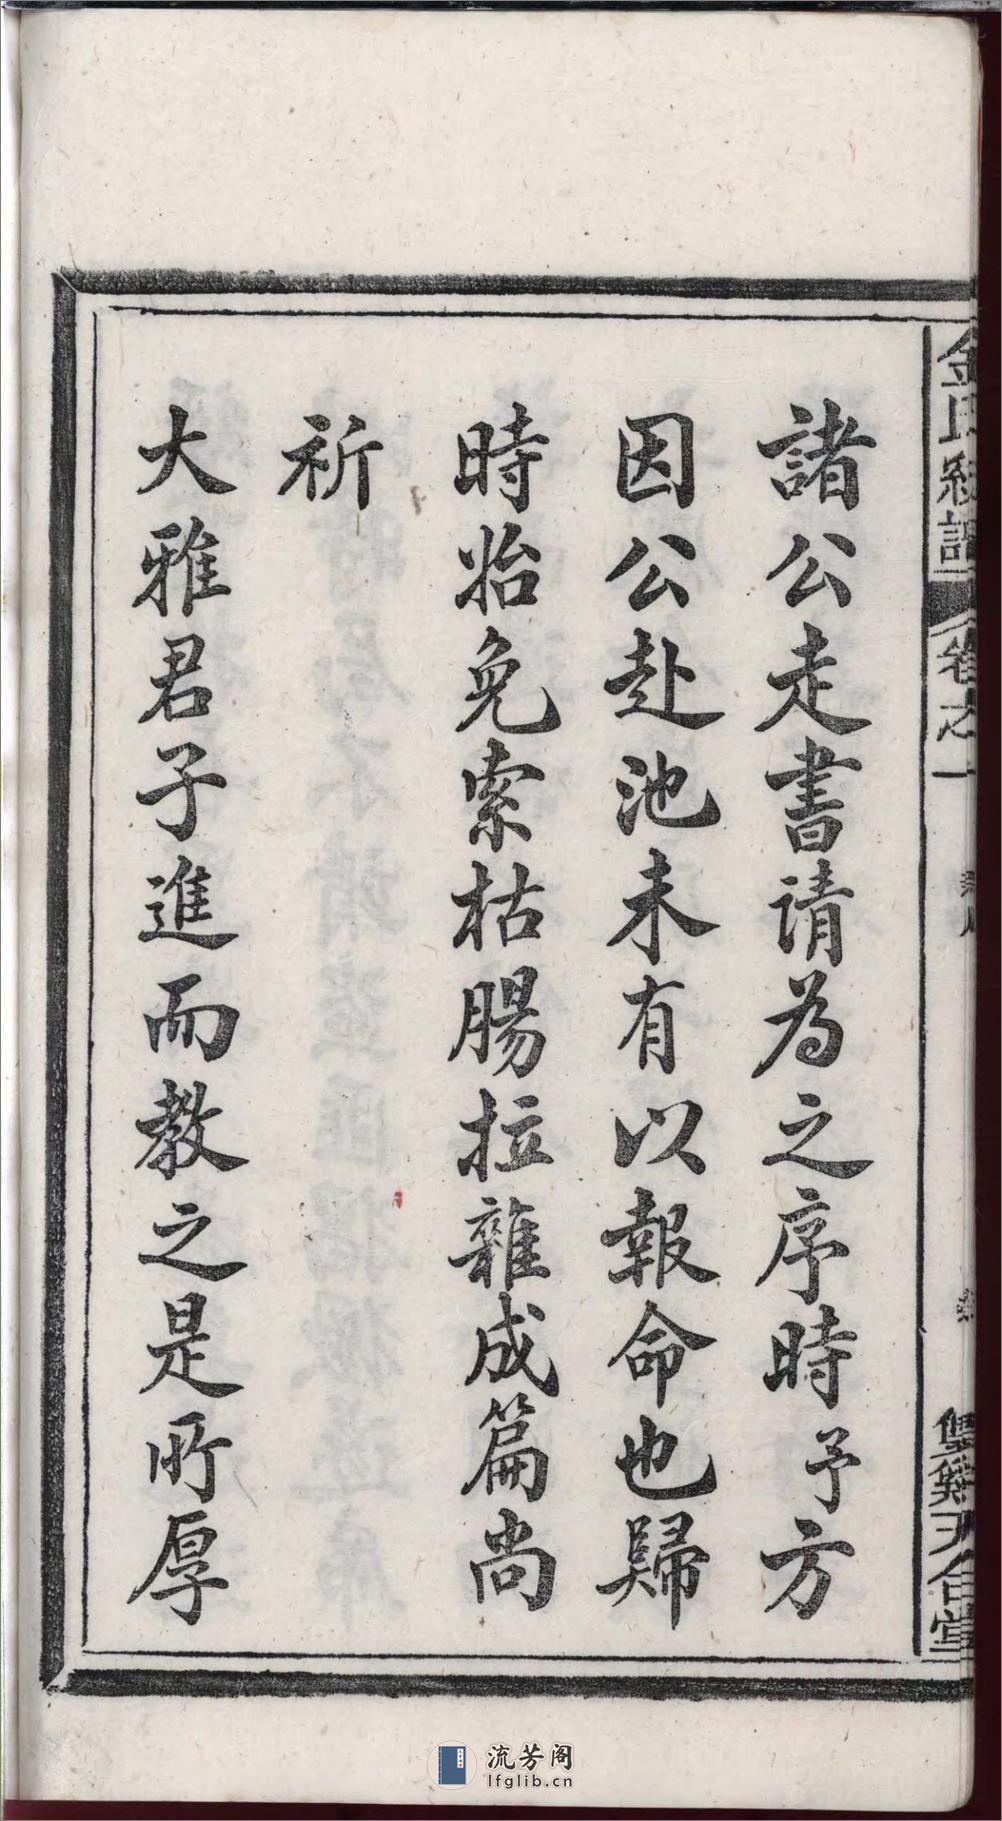 諸公走書请為之序時予方
因公赴池未有以報命也歸
時始免索枯腸拉雜成篇尚
祈
大雅君子進而教之是所厚
金氏統譜
卷之一
天合堂
流芳阁
lfglib.cn